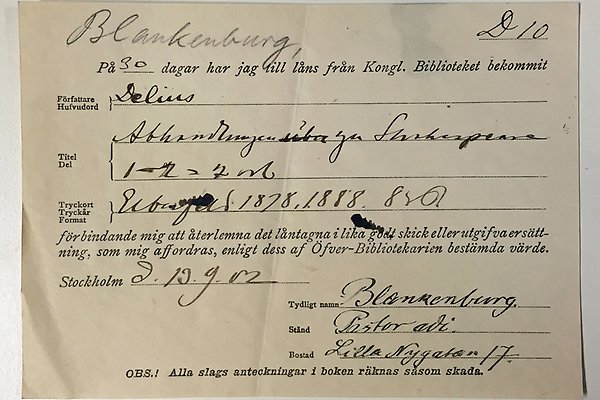 Blankenburg,
D 10
På 30 dagar har jag till låns från Kongl. Biblioteket bekommit
Författare
Hufvudord
Delius
Titel
Del
Abhandlungen über zu Shakespeare
1-2
Tryckort
Tryckår
Format
1878, 1888. 8
förbindande mig att återlemna det låntagna i lika godt skick eller utgifva ersätt-
ning, som mig affordras, enligt dess af Öfver-Bibliotekarien bestämda värde.
Stockholm d. 13.9.02
Tydligt namn Blankenburg.
Stånd Pastor adj.
Bostad Lilla Nygatan 17.
OBS.! Alla slags anteckningar i boken räknas såsom skada.